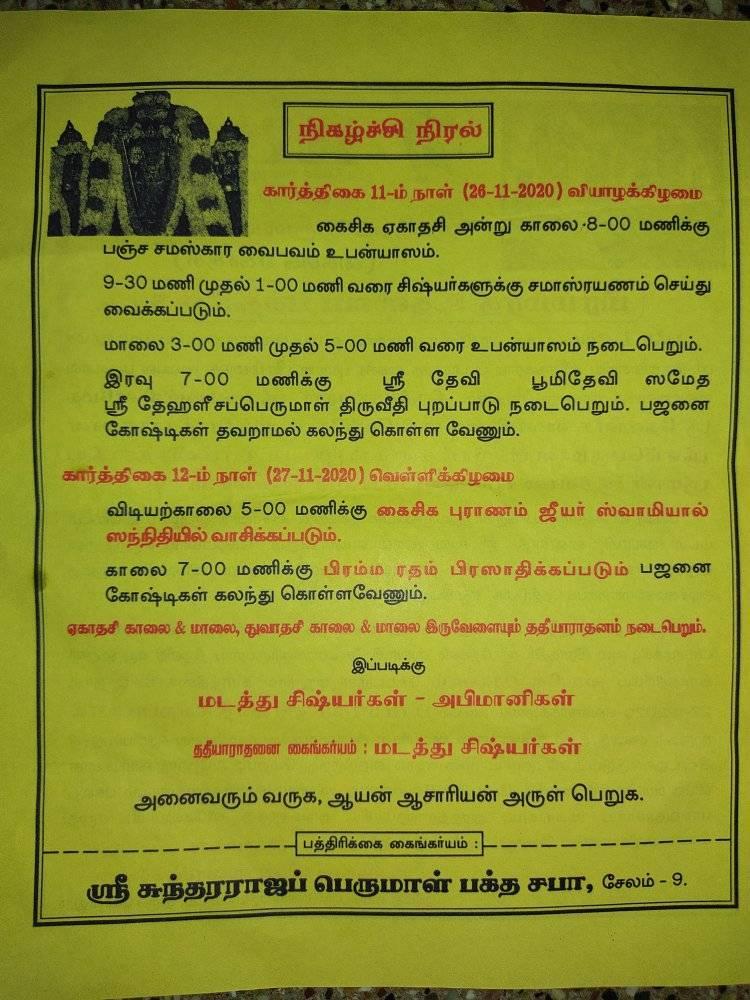 நிகழ்ச்சி நிரல்
கார்த்திகை 11-ம் நாள் (26-11-2020) வியாழக்கிழமை
கைசிக ஏகாதசி அன்று காலை 8-00 மணிக்கு
பஞ்ச சமஸ்கார வைபவம் உபன்யாஸம்.
9-30 மணி முதல் 1-00 மணி வரை சிஷ்யர்களுக்கு சமாஸ்ரயணம் செய்து
வைக்கப்படும்.
மாலை 3-00 மணி முதல் 5-00 மணி வரை உபன்யாஸம் நடைபெறும்.
இரவு 7-00 மணிக்கு ஸ்ரீ தேவி பூமிதேவி ஸமேத
ஸ்ரீ தேஹளீசப்பெருமாள் திருவீதி புறப்பாடு நடைபெறும். பஜனை
கோஷ்டிகள் தவறாமல் கலந்து கொள்ள வேணும்.
கார்த்திகை 12-ம் நாள் (27-11-2020) வெள்ளிக்கிழமை
விடியற்காலை 5-00 மணிக்கு கைசிக புராணம் ஜீயர் ஸ்வாமியால்
ஸந்நிதியில் வாசிக்கப்படும்.
காலை 7-00 மணிக்கு பிரம்ம ரதம் பிரஸாதிக்கப்படும் பஜனை
கோஷ்டிகள் கலந்து கொள்ளவேணும்.
ஏகாதசி காலை & மாலை, துவாதசி காலை & மாலை இருவேளையும் ததீயாராதனம் நடைபெறும்.
இப்படிக்கு
மடத்து சிஷ்யர்கள் - அபிமானிகள்
ததீயாராதனை கைங்கர்யம் : மடத்து சிஷ்யர்கள்
அனைவரும் வருக, ஆயன் ஆசாரியன் அருள் பெறுக.
பத்திரிக்கை கைங்கர்யம் :
ஸ்ரீ சுந்தரராஜப் பெருமாள் பக்த சபா, சேலம் - 9.